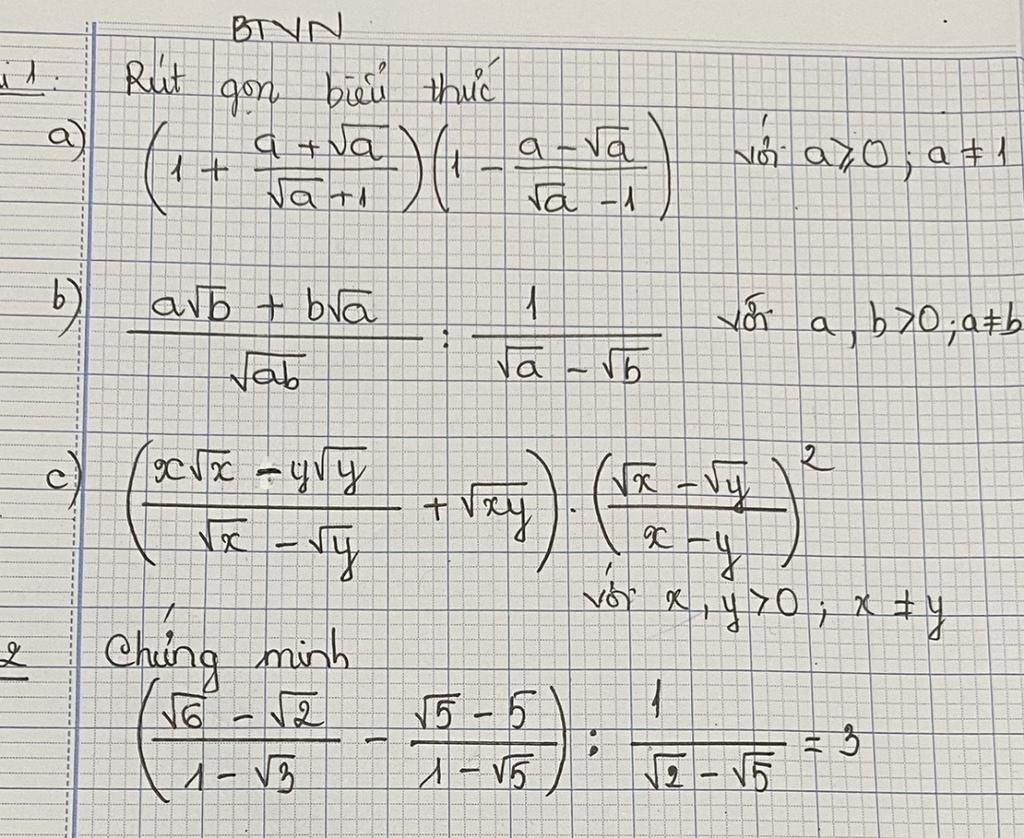 BTVN
i 1. Rút gọn biểu thức
a) (1 + (a + √a)/(√a + 1))(1 - (a - √a)/(√a - 1)) với a ⩾ 0; a ≠ 1
b) (a√b + b√a)/√ab : 1/(√a - √b) với a, b > 0; a ≠ b
c) ((x√x - y√y)/(√x - √y) + √xy) . ((√x - √y)/(x - y))²
với x, y > 0; x ≠ y
2 Chứng minh
((√6 - √2)/(1 - √3) - (√5 - 5)/(1 - √5)) : 1/(√2 - √5) = 3